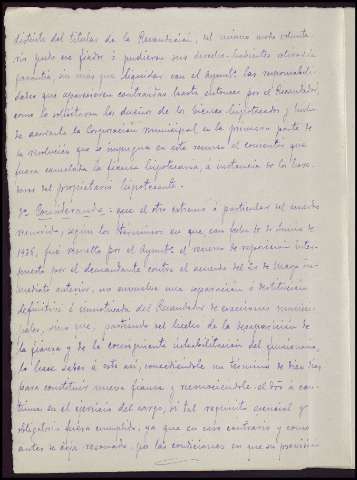 distinto del titular de la Recaudación, del mismo modo volunta-
rio pudo ser fiador ó pudieron sus derecho-habientes retirar la
garantía, sin más que liquidar con el Ayuntº las responsabili-
dades que apareciesen contraídas hasta entonces por el Recaudador,
como lo solicitaron los dueños de los bienes hipotecados y hubo
de acordarlo la Corporación municipal en la primera parte de
la resolución que se impugna en este recurso al consentir que
fuera cancelada la fianza hipotecaria, á instancia de los here-
deros del propietario hipotecante.
2º Considerando: que el otro extremo ó particular del acuerdo
recurrido, según los términos en que, con fecha de Junio de
1926, fué resuelto por el Ayuntº el recurso de reposición inter-
puesto por el demandante contra el acuerdo del 20 de Mayo in-
mediato anterior, no envuelve una separación ó destitución
definitiva é inmotivada del Recaudador de exacciones munici-
pales, sino que, partiendo del hecho de la desaparición de
la fianza y de la consiguiente inhabilitación del funcionario,
lo hace saber á éste así, concediéndole un término de diez días
para constituir nueva fianza y reconociéndole el drº á con-
tinuar en el ejercicio del cargo, si tal requisito esencial y
obligatorio fuera cumplido, ya que en caso contrario y como
antes se deja razonado, por las condiciones en que su provisión